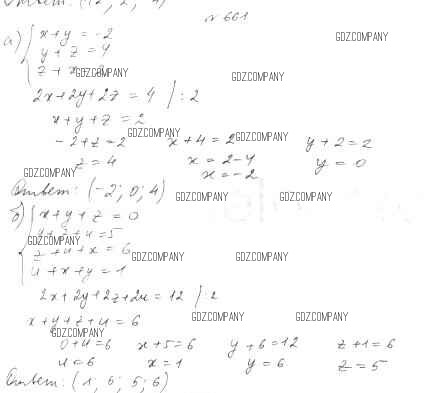 Ответ: (12; 2; 4)
№ 661
а) x+y = -2
y+z = 4
z + x = 2
2x+2y+2z = 4 / :2
x+y+z = 2
-2+z=2 x+4=2 y+2=2
z=4 x = 2-4 y=0
x=-2
Ответ: (-2; 0; 4)
б) x+y+z=0
y+z+u=5
z+u+x=6
u+x+y=1
2x+2y+2z+2u=12 / 2
x+y+z+u=6
0+u=6 x+5=6 y+6=12 z+1=6
u=6 x=1 y=6 z=5
Ответ: (1; 6; 5; 6)
GDZCOMPANY
GDZCOMPANY
GDZCOMPANY
GDZCOMPANY
GDZCOMPANY
GDZCOMPANY
GDZCOMPANY
GDZCOMPANY
GDZCOMPANY
GDZCOMPANY
GDZCOMPANY
GDZCOMPANY
GDZCOMPANY
GDZCOMPANY